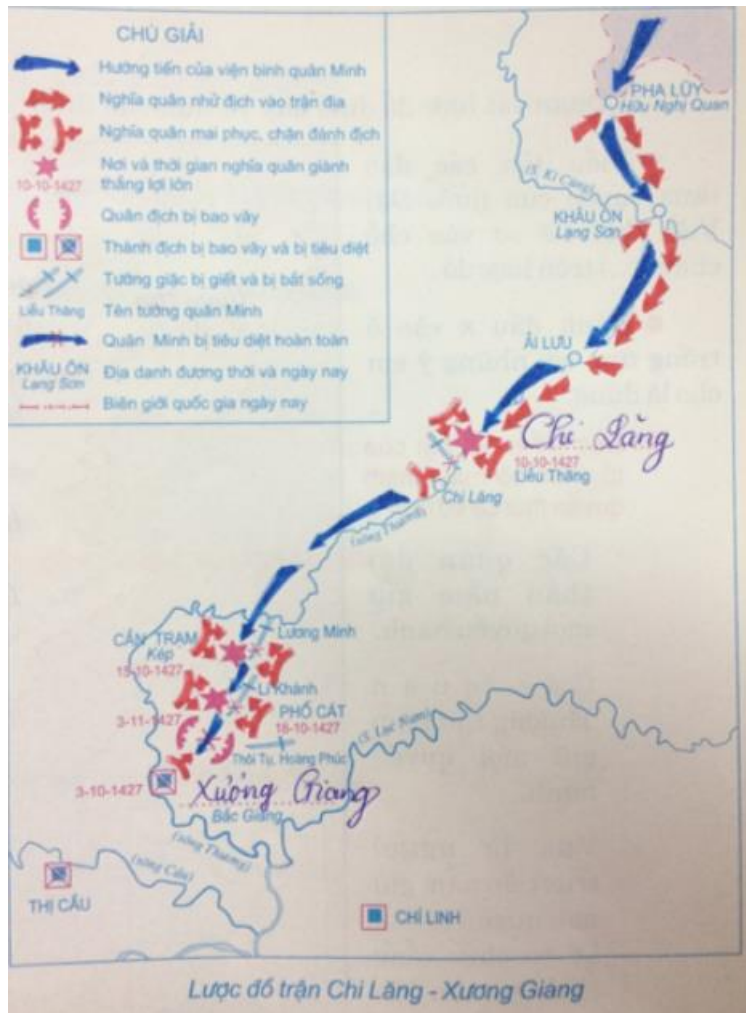 CHÚ GIẢI
Hướng tiến của viện binh quân Minh
Nghĩa quân nhử địch vào trận địa
Nghĩa quân mai phục, chặn đánh địch
Nơi và thời gian nghĩa quân giành
thắng lợi lớn
10-10-1427
Quân địch bị bao vây
Thành địch bị bao vây và bị tiêu diệt
Tướng giặc bị giết và bị bắt sống
Liễu Thăng
Tên tướng quân Minh
Quân Minh bị tiêu diệt hoàn toàn
KHÂU ÔN
Lạng Sơn
Địa danh đương thời và ngày nay
Biên giới quốc gia ngày nay
PHA LŨY
Hữu Nghị Quan
(S. Kì Cùng)
KHÂU ÔN
Lạng Sơn
ẢI LƯU
Chi Lăng
10-10-1427
Liễu Thăng
Chi Lăng
(sông Thương)
CẦN TRẠM
Kép
15-10-1427
Lương Minh
Lí Khánh
PHỐ CÁT
18-10-1427
3-11-1427
Thôi Tụ, Hoàng Phúc
3-10-1427
Xương Giang
Bắc Giang
(S. Lục Nam)
(sông Thương)
(sông Cầu)
THỊ CẦU
CHÍ LINH
Lược đồ trận Chi Lăng - Xương Giang